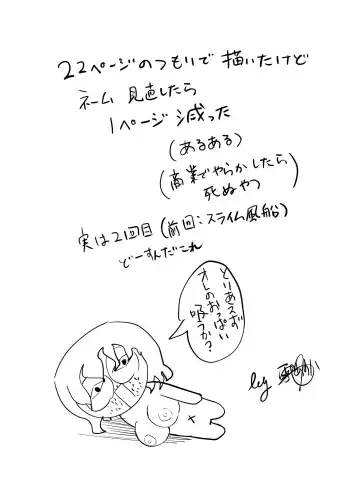 22ページのつもりで描いたけど
ネーム見直したら
1ページ減った
(あるある)
(商業でやらかしたら
死ぬやつ)
実は2回目(前回:スライム風船)
どーすんだこれ
とりあえず
オレのおっぱい
吸うか?
by